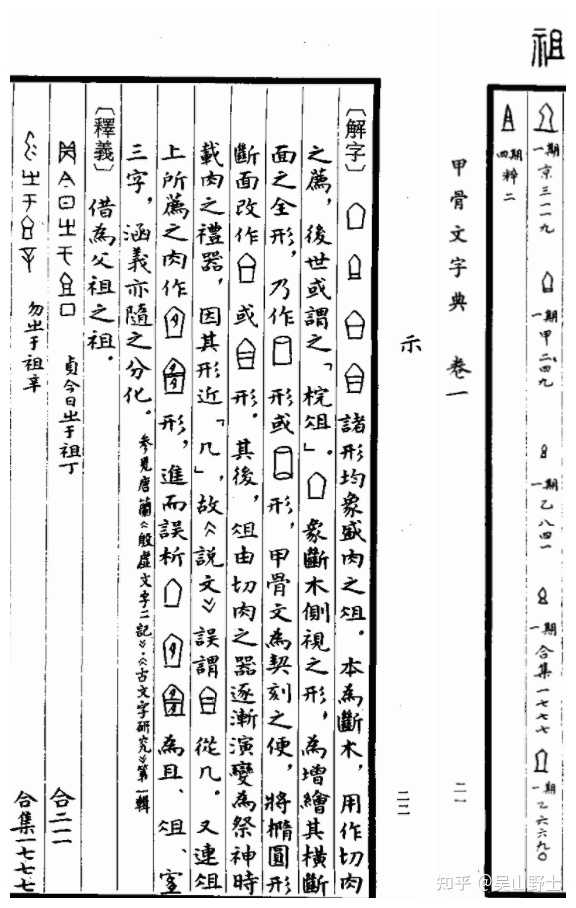 祖
一期 京三一一九 一期 甲二〇四九 一期 乙八四一 一期 合集一七七七 一期 乙六六九〇
四期 粹二
甲骨文字典 卷一 二一
示 二二
〔解字〕 諸形均象盛肉之俎。本為斷木，用作切肉
之薦，後世或謂之「梡俎」。象斷木側視之形，為增繪其橫斷
面之全形，乃作 形或 形，甲骨文為契刻之便，將橢圓形
斷面改作 或 形。其後，俎由切肉之器逐漸演變為祭神時
載肉之禮器，因其形近「几」，故《說文》誤謂 從几。又連俎
上所薦之肉作 形，進而誤析 為且、俎、宜
三字，涵義亦隨之分化。參見唐蘭《殷虛文字二記》，《古文字研究》第一輯
〔釋義〕借為父祖之祖。
貞今日㞢于祖丁 合二一一
勿㞢于祖辛 合集一七七七
知乎 @吴山野士